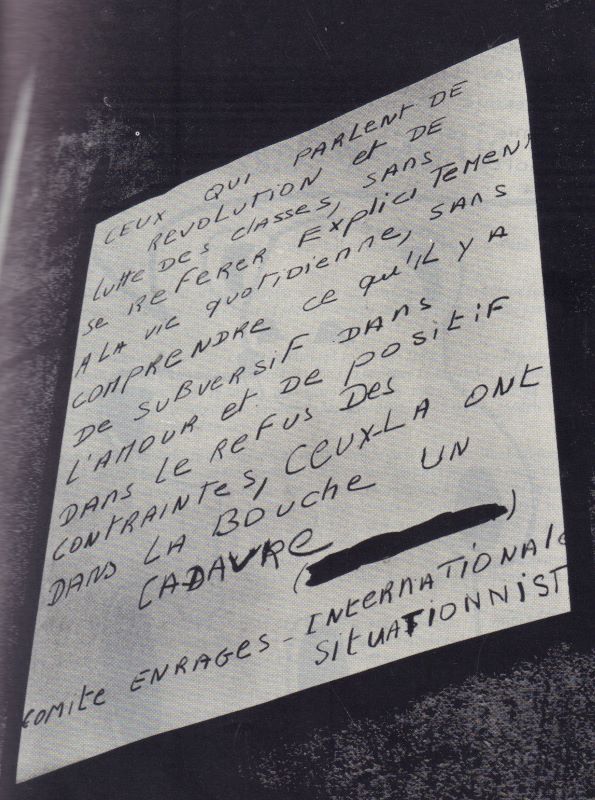 CEUX QUI PARLENT DE
REVOLUTION ET DE
LUTTE DES CLASSES, SANS
SE REFERER EXPLICITEMENT
A LA VIE QUOTIDIENNE, SANS
COMPRENDRE CE QU'IL Y A
DE SUBVERSIF DANS
L'AMOUR ET DE POSITIF
DANS LE REFUS DES
CONTRAINTES, CEUX-LA ONT
DANS LA BOUCHE UN
CADAVRE ( )
COMITE ENRAGES - INTERNATIONALE
SITUATIONNIST